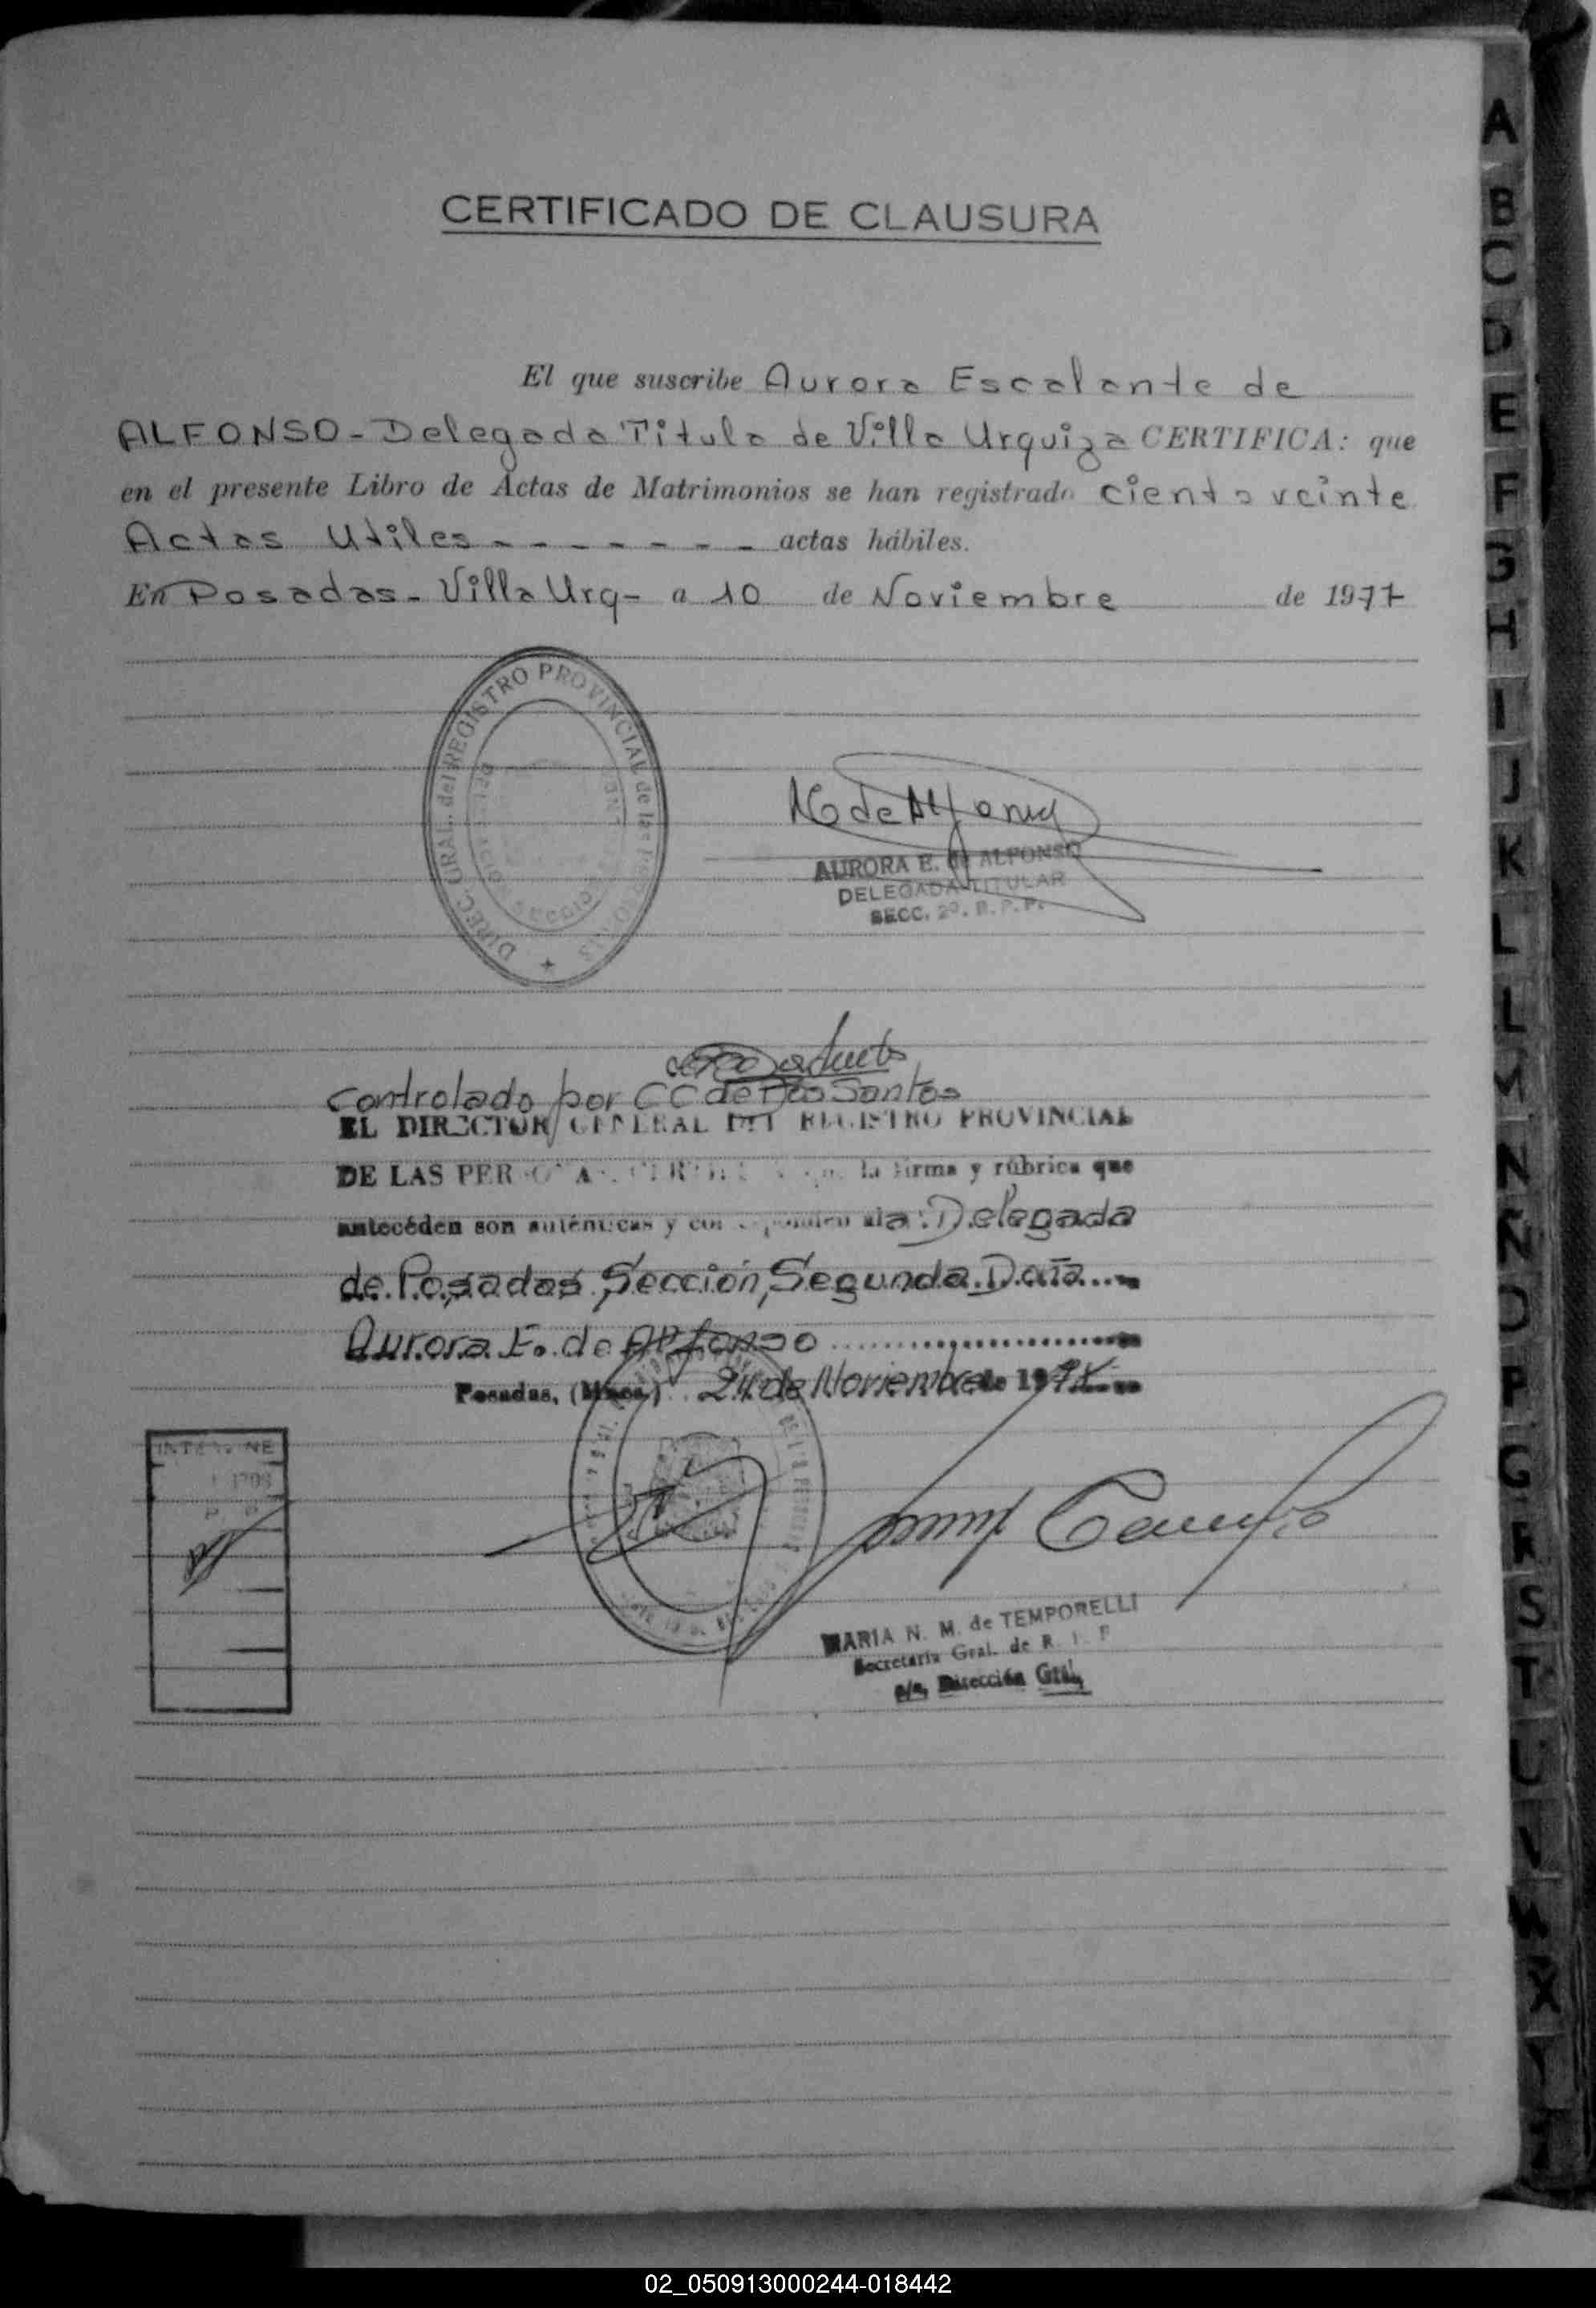 CERTIFICADO DE CLAUSURA
El que suscribe Aurora Escalante de
ALFONSO - Delegada Titula de Villa Urquiza CERTIFICA: que
en el presente Libro de Actas de Matrimonios se han registrado ciento veinte
Actas Utiles - - - - - - - actas hábiles.
En Posadas - Villa Urq - a 10 de Noviembre de 1977
DIREC. GRAL. del REGISTRO PROVINCIAL de las
AURORA E. de ALFONSO
DELEGADA TITULAR
SECC. 2ª. R. P. P.
Controlado por CC de Dos Santos
EL DIRECTOR GENERAL DEL REGISTRO PROVINCIAL
DE LAS PERSONAS, que la firma y rúbrica que
antecéden son auténticas y corresponden a la: Delegada
de Posadas Sección Segunda Doña
Aurora E. de Alfonso
Posadas, (Mnes.) 24 de Noviembre de 197
MARIA N. M. de TEMPORELLI
Secretaria Gral. de R. P. P.
a/c. Dirección Gral.
A
B
C
D
E
F
G
H
I
J
K
L
L
M
N
Ñ
O
P
R
S
T
U
V
W
X
Y
02_050913000244-018442